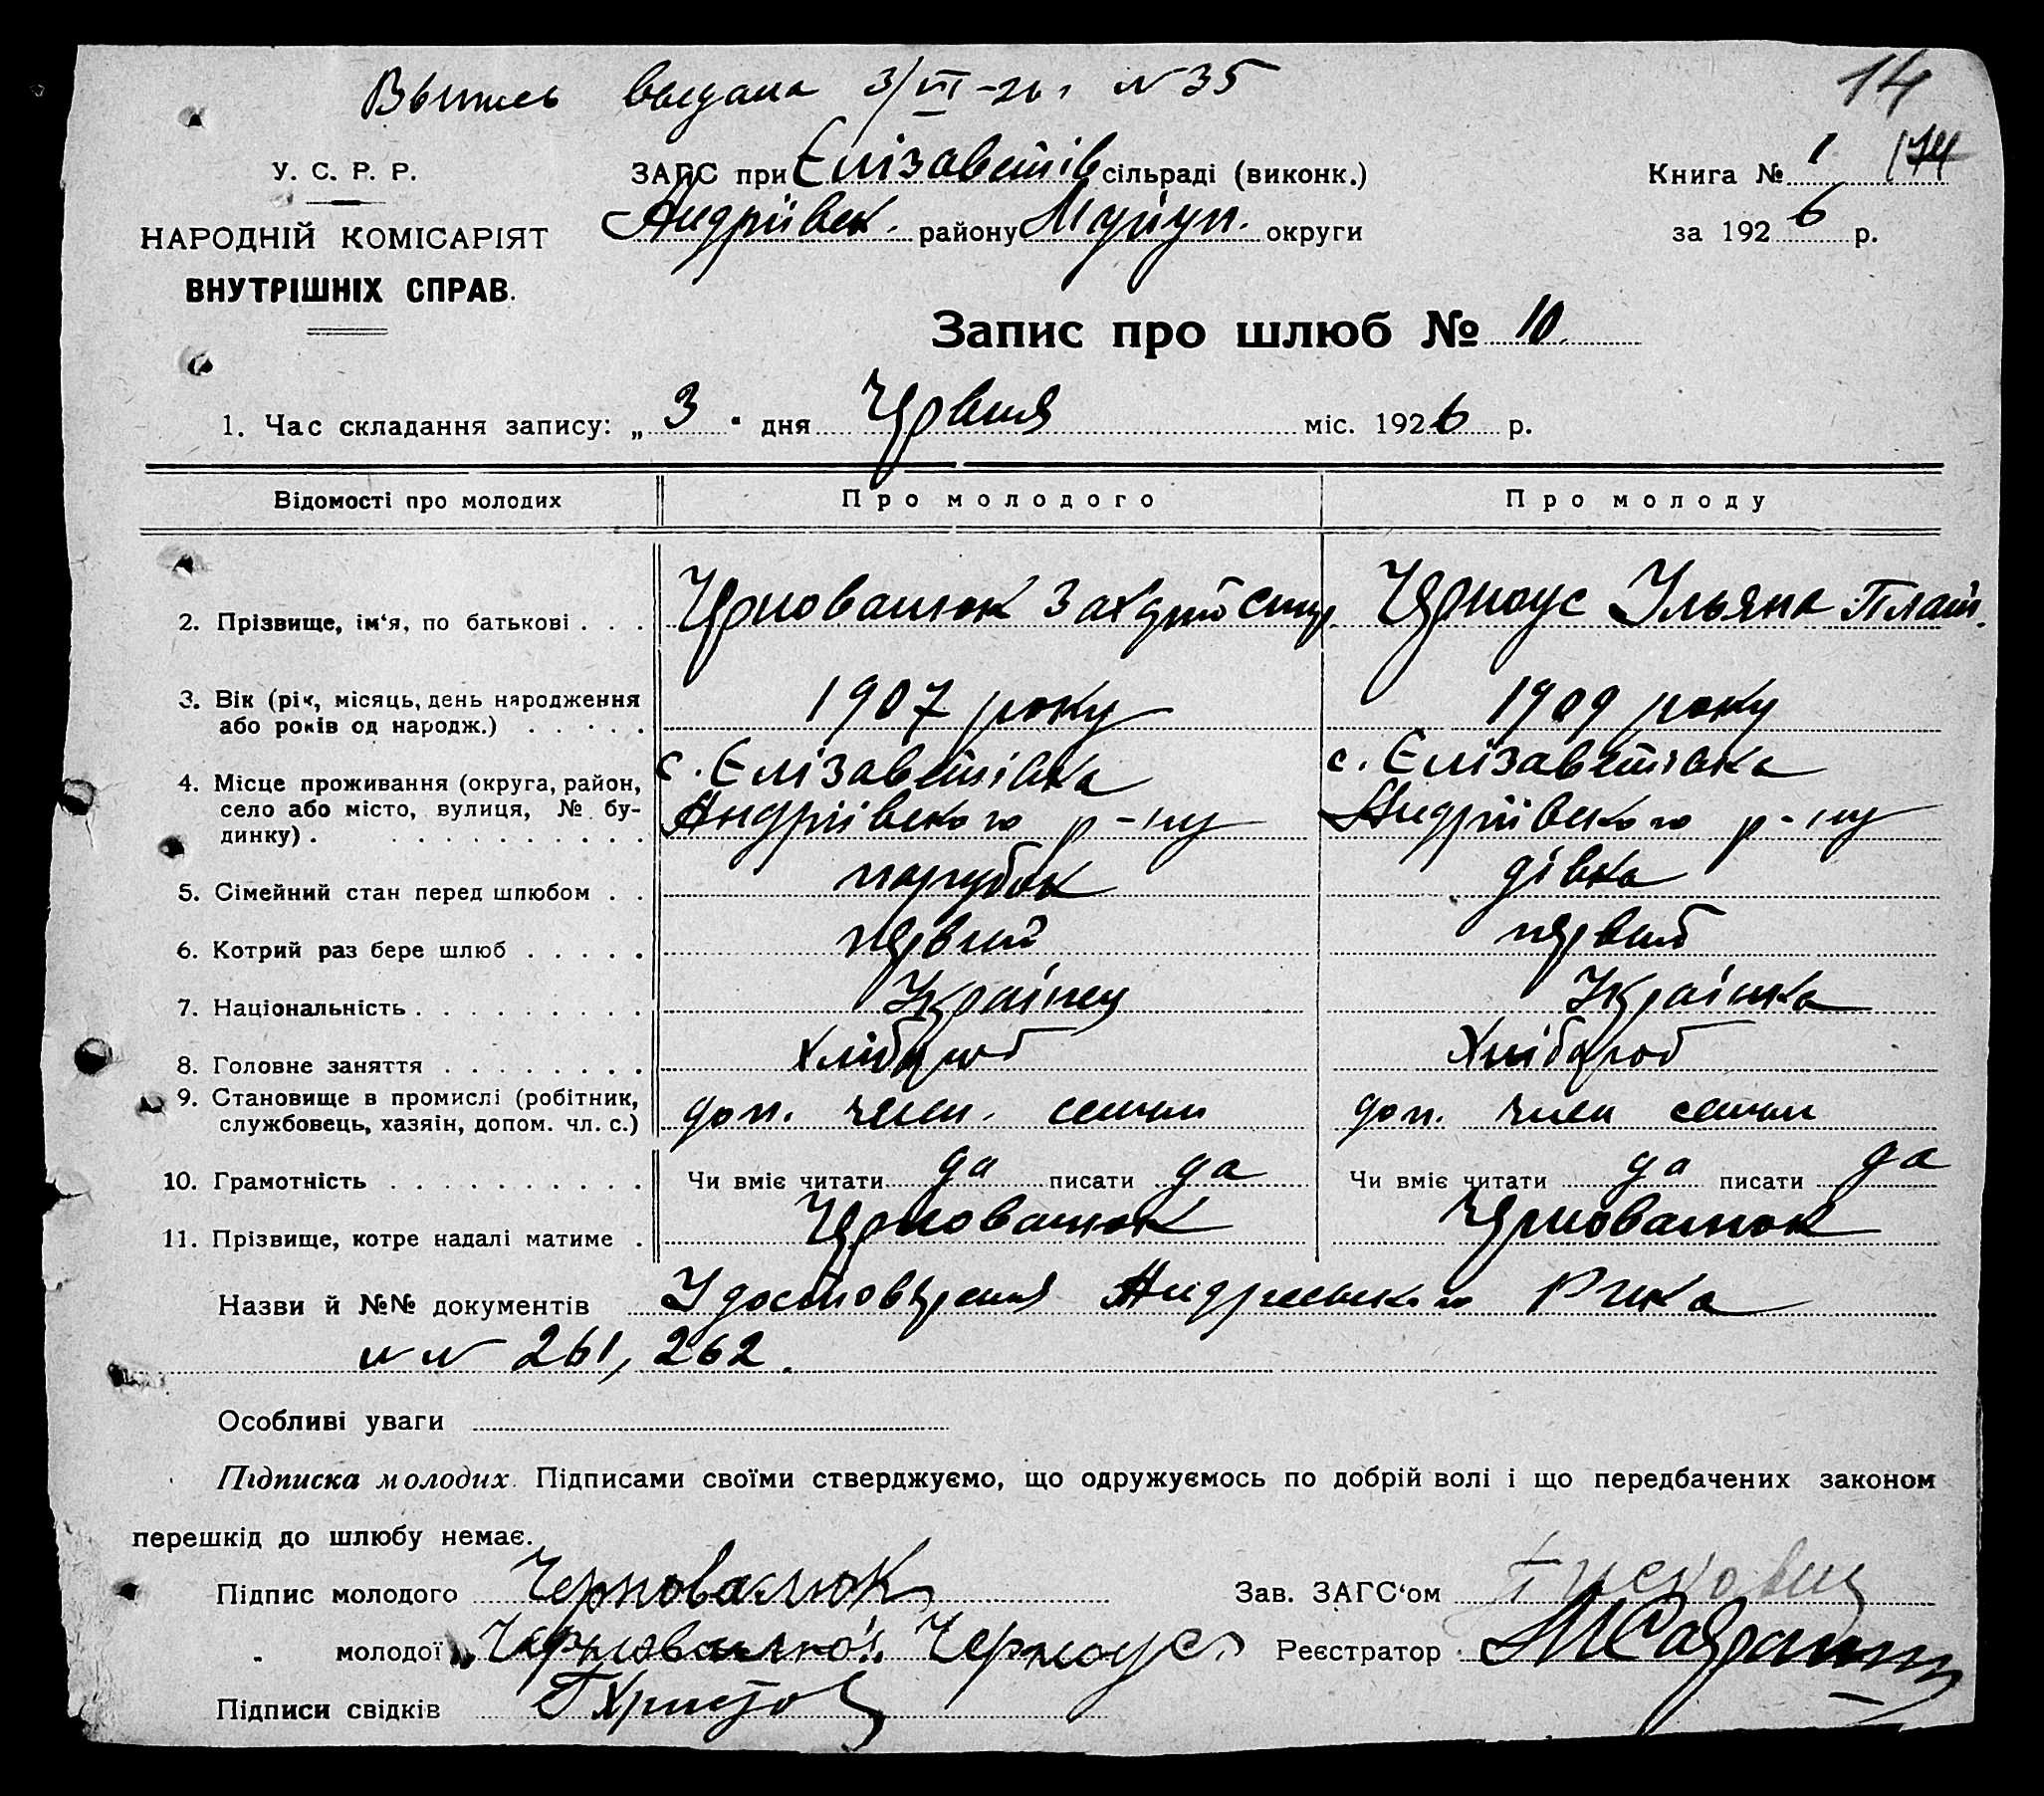 Выпись выдана 3/VI-26 г. N 35
14
У. С. Р. Р.
НАРОДНІЙ КОМІСАРІЯТ
ВНУТРІШНІХ СПРАВ.
ЗАГС при Єлізаветів сільраді (виконк.)
Андріївськ. району округи
Книга № 1
за 1926 р.
Запис про шлюб № 10
1. Час складання запису: „3" дня Червня міс. 1926 р.
Відомості про молодих Про молодого Про молоду
2. Прізвище, ім'я, по батькові . . . Черновалюк Чероус Ульяна Плат.
3. Вік (рік, місяць, день народження або років од народж.) . . . . . 1907 року 1909 року
4. Місце проживання (округа, район, село або місто, вулиця, № будинку) . с. Єлізаветівка Андріївського р-ну с. Єлізаветівка Андріївського р-ну
5. Сімейний стан перед шлюбом . . парубок дівка
6. Котрий раз бере шлюб . . . . . первий первий
7. Національність . . . . . . . . . Українец Українка
8. Головне заняття . . . . . . . . Хлібороб Хлібороб
9. Становище в промислі (робітник, службовець, хазяїн, допом. чл. с.) доп. член. семьи доп. член семьи
10. Грамотність . . . . . . . . . . Чи вміє читати да писати да Чи вміє читати да писати да
11. Прізвище, котре надалі матиме . Черновалюк Черновалюк
Назви й №№ документів Удостоверения Рика
N N 261, 262.
Особливі уваги
Підписка молодих. Підписами своїми стверджуємо, що одружуємось по добрій волі і що передбачених законом
перешкід до шлюбу немає.
Підпис молодого Черновалюк Зав. ЗАГС'ом
„ молодої Черноус Реєстратор
Підписи свідків